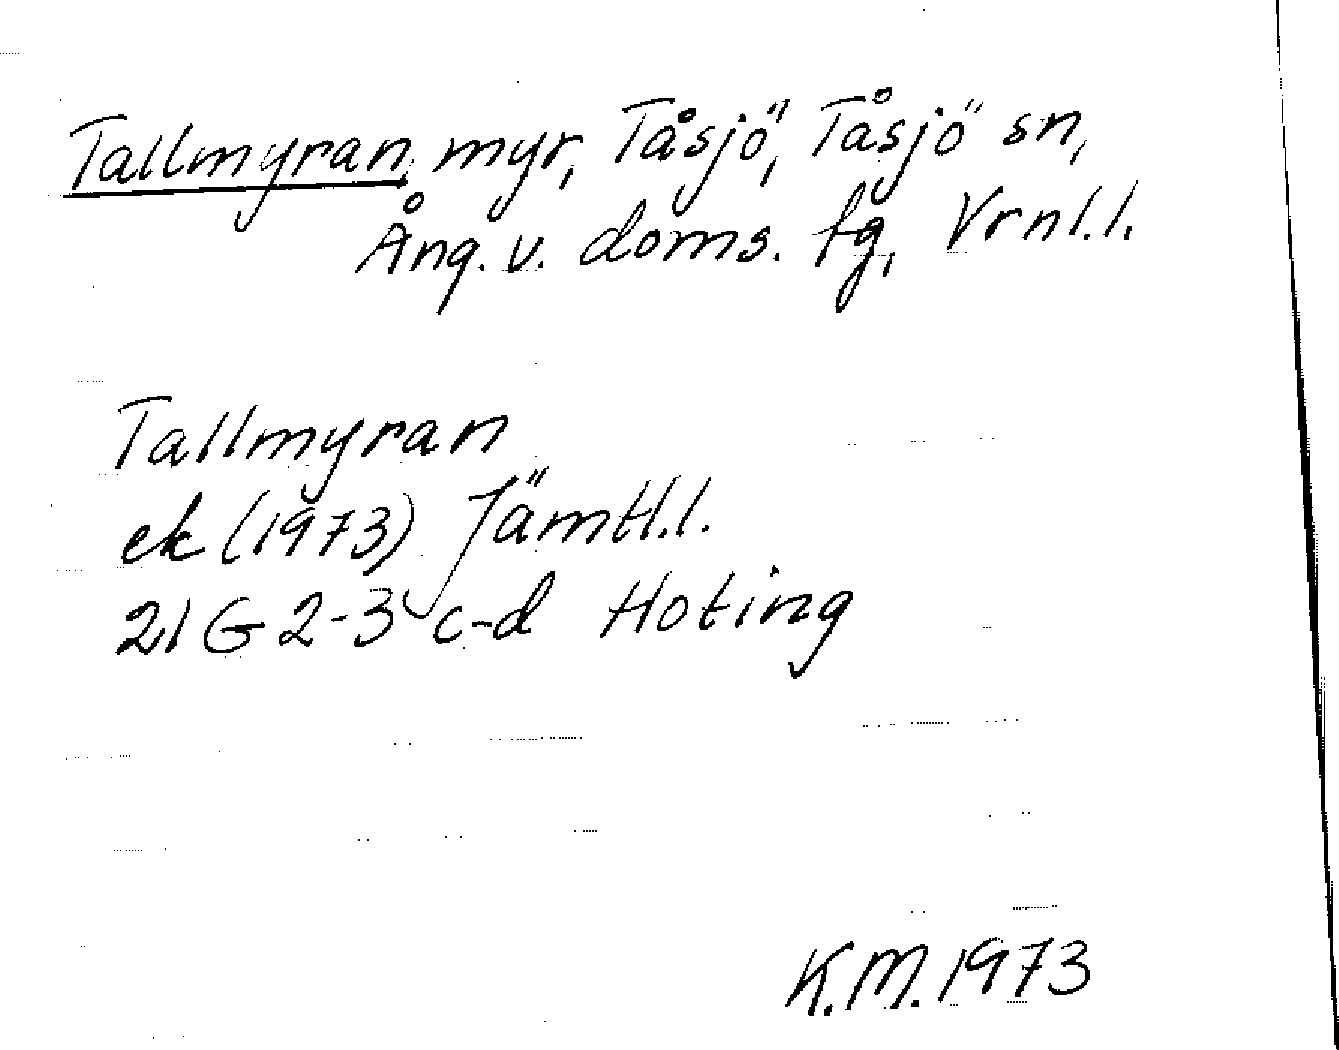 Tallmyran, myr, Tåsjö, Tåsjö sn,
Ång. v. doms. fg, Vrnl.l.
Tallmyran
ek (1973) Jämtl.l.
21 G 2-3 c-d Hoting
K.M. 1973